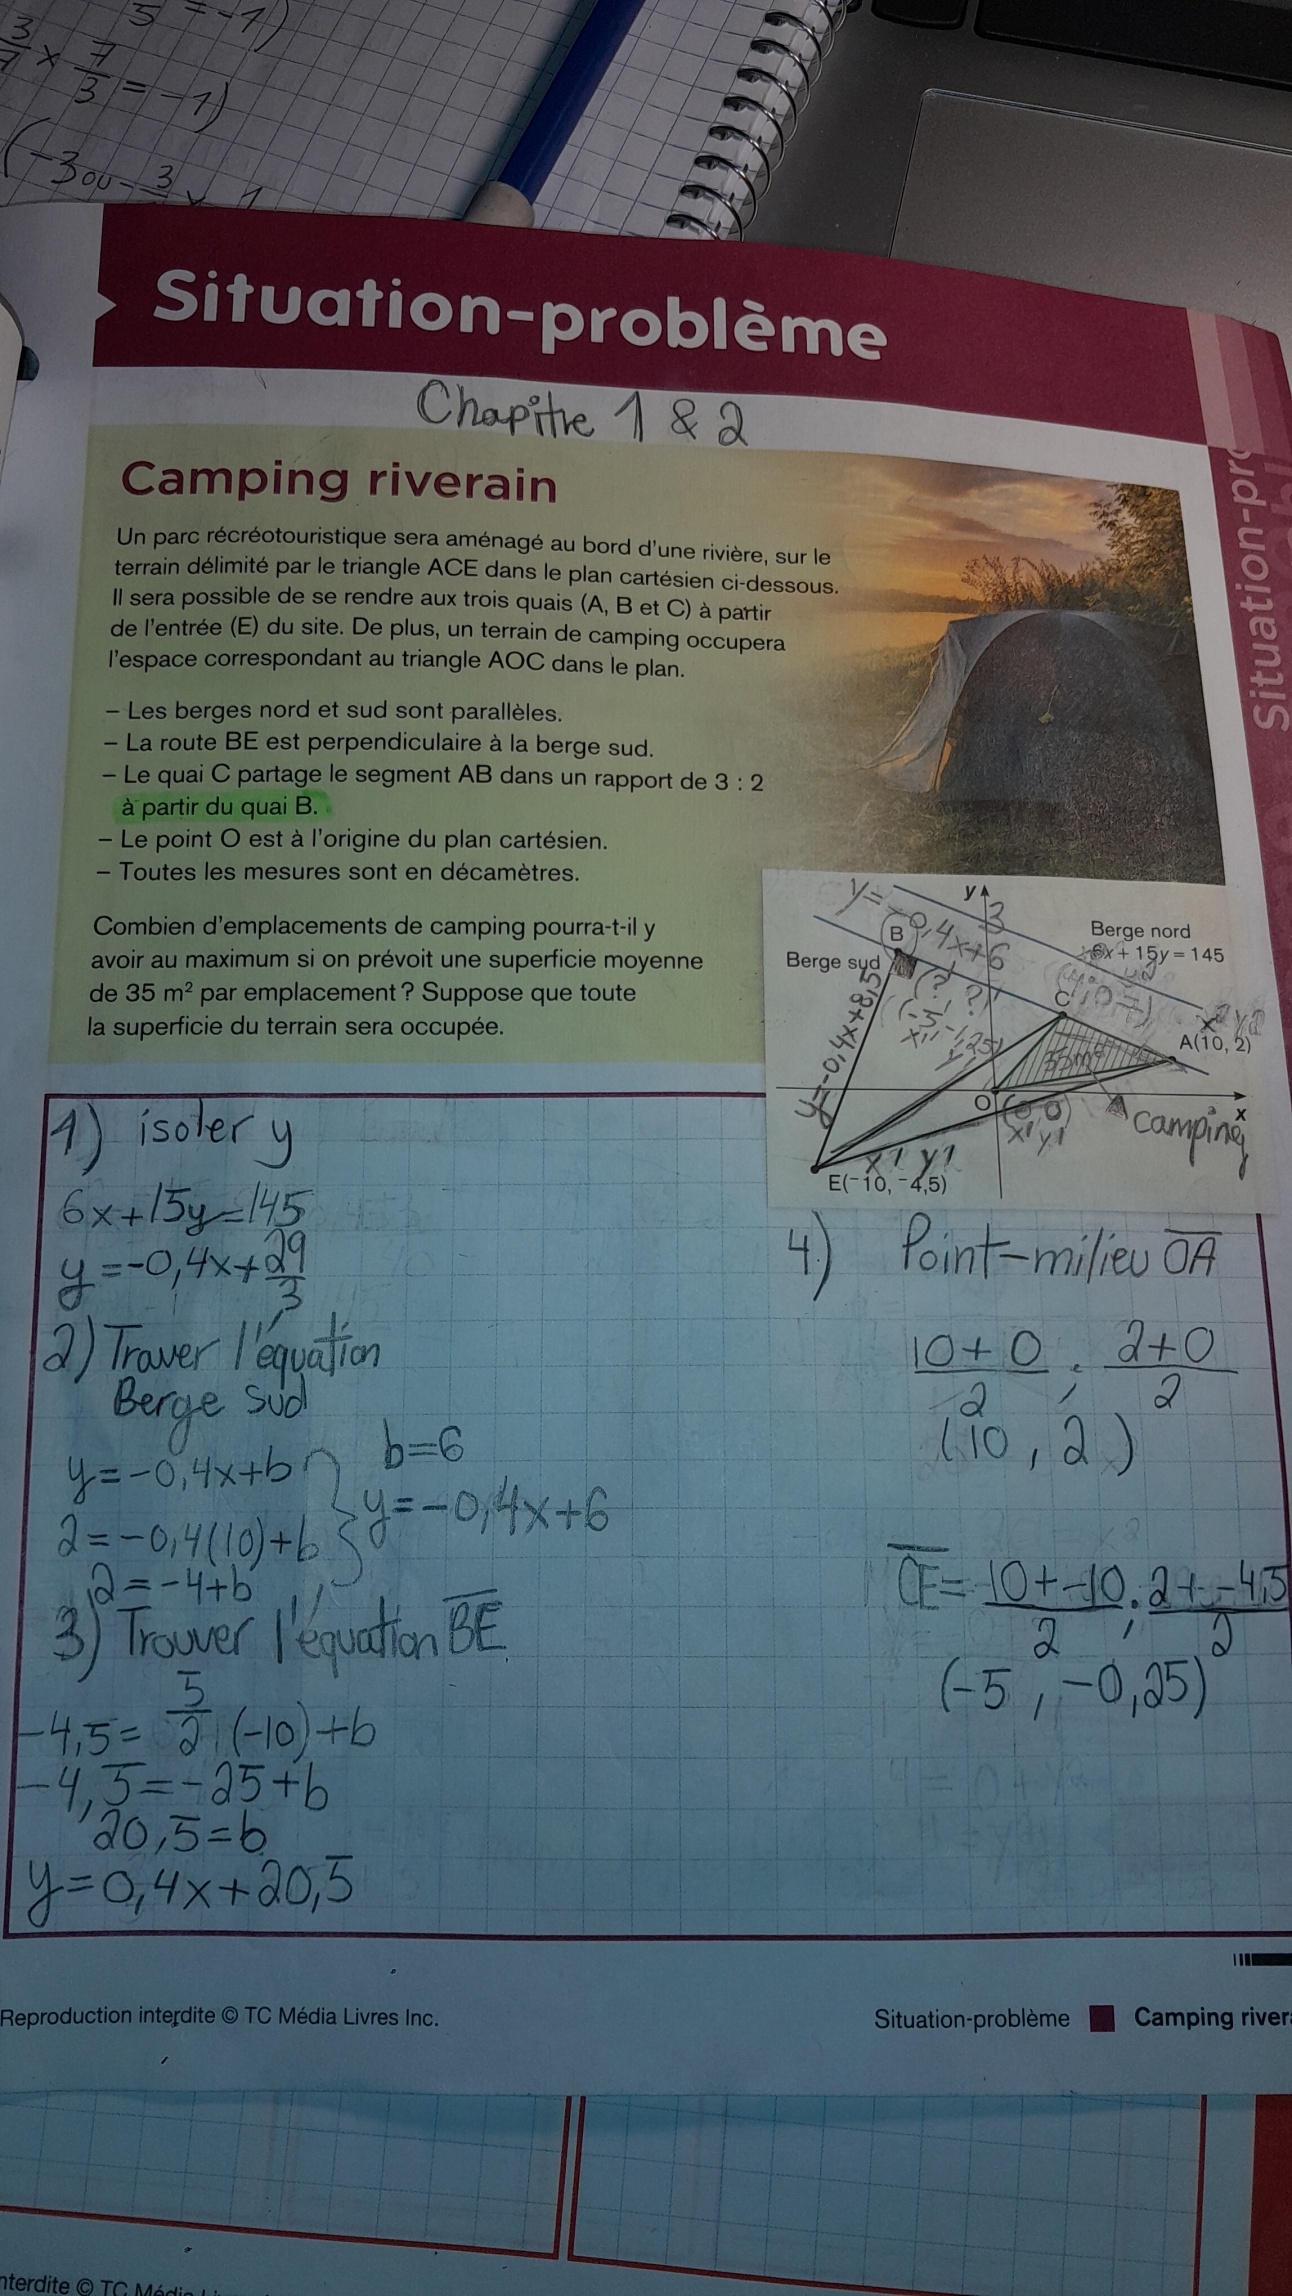 5 = -1)
3/7 × 7/3 = -1)
(-3 ou - 3
Situation-problème
Chapitre 1 & 2
Situation-pro
Camping riverain
Un parc récréotouristique sera aménagé au bord d'une rivière, sur le
terrain délimité par le triangle ACE dans le plan cartésien ci-dessous.
Il sera possible de se rendre aux trois quais (A, B et C) à partir
de l'entrée (E) du site. De plus, un terrain de camping occupera
l'espace correspondant au triangle AOC dans le plan.
– Les berges nord et sud sont parallèles.
– La route BE est perpendiculaire à la berge sud.
– Le quai C partage le segment AB dans un rapport de 3 : 2
à partir du quai B.
– Le point O est à l'origine du plan cartésien.
– Toutes les mesures sont en décamètres.
Combien d'emplacements de camping pourra-t-il y
avoir au maximum si on prévoit une superficie moyenne
de 35 m² par emplacement? Suppose que toute
la superficie du terrain sera occupée.
y
3
y=-0,4x+6
B
Berge nord
6x + 15y = 145
Berge sud
(?, ?)
C
y=-0,4x+8,5
A(10, 2)
35m²
O
(0,0)
x
x1 y1
camping
x1 y1
E(-10, -4,5)
1) isoler y
6x+15y=145
y=-0,4x+29/3
2) Trouver l'équation
Berge sud
y=-0,4x+b
b=6
2=-0,4(10)+b
y=-0,4x+6
2=-4+b
3) Trouver l'équation BE
-4,5= 5/2 (-10)+b
-4,5=-25+b
20,5=b
y=0,4x+20,5
4.) Point-milieu OA
10+0/2 ; 2+0/2
(10, 2)
CE= 10+-10/2 ; 2+-4,5/2
(-5, -0,25)
Reproduction interdite © TC Média Livres Inc.
Situation-problème ■ Camping river
nterdite © TC Média